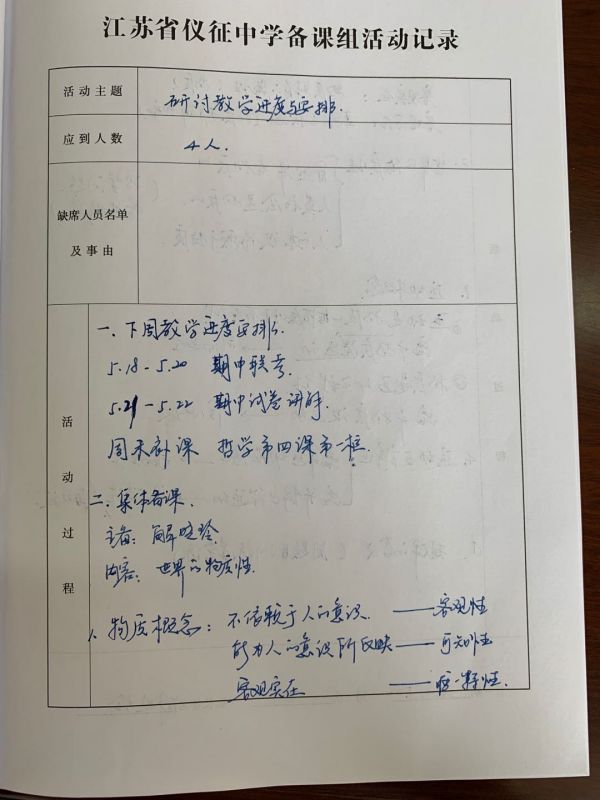 江苏省仪征中学备课组活动记录
活动主题
研讨教学进度与安排.
应到人数
4人.
缺席人员名单
及事由
活动过程
一. 下周教学进度安排.
5.18-5.20 期中联考.
5.21-5.22 期中试卷讲解.
周末补课 哲学第四课第一框.
二. 集体备课.
主备: 解晓玲.
内容: 世界的物质性.
1. 物质概念: 不依赖于人的意识. ——客观性
能为人的意识所反映——可知性
客观实在 ——唯一特性.